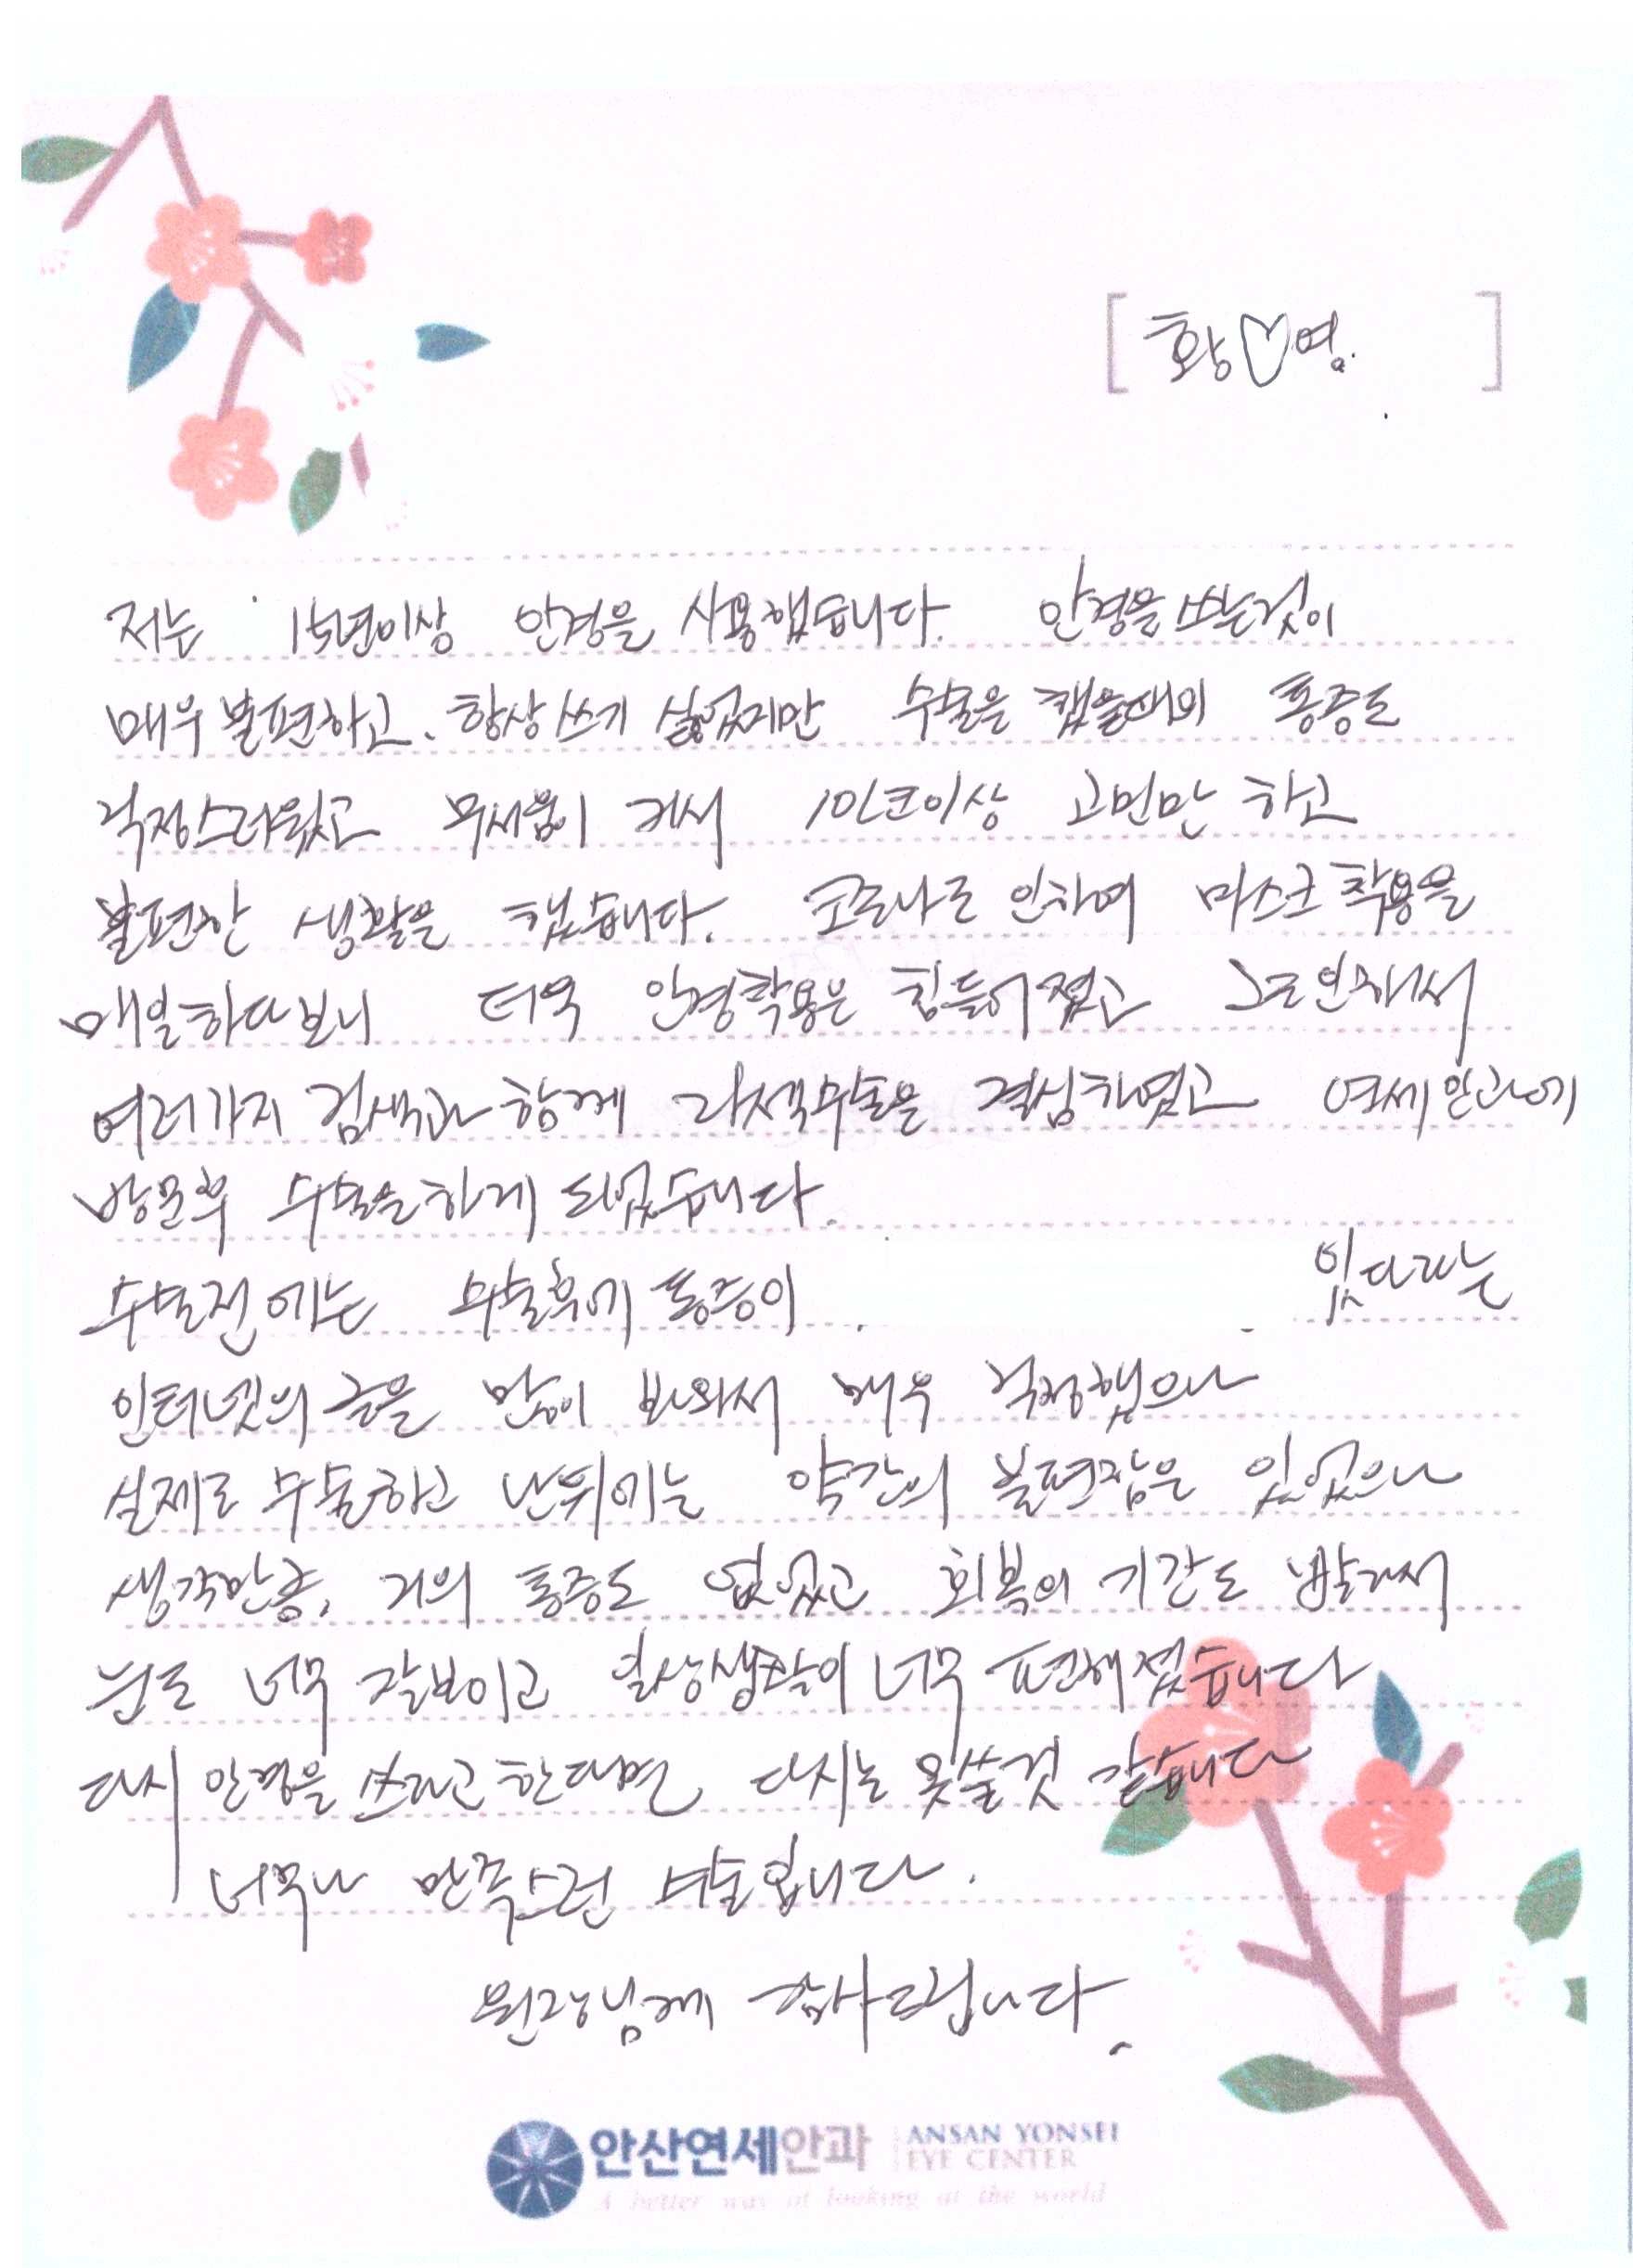 [ 황♡영. ]
저는 15년이상 안경을 사용했습니다. 안경을 쓰는것이
매우 불편하고. 항상 쓰기 싫었지만 수술을 했을때의 통증도
걱정스러웠고 무서움이 커서 10년이상 고민만 하고
불편한 생활을 했습니다. 코로나로 인하여 마스크 착용을
매일하다보니 더욱 안경착용은 힘들어졌고 그로인해서
여러가지 검색과 함께 라섹수술을 결심하였고 연세안과에
방문후 수술을하게 되었습니다.
수술전에는 수술후에 통증이 있다라는
인터넷의 글을 많이 봐와서 매우 걱정했으나
실제로 수술하고 난뒤에는 약간의 불편감은 있었으나
생각만큼. 거의 통증도 없었고 회복의 기간도 빨라서
눈도 너무 잘보이고 일상생활이 너무 편해졌습니다
다시 안경을 쓰라고 한다면 다시는 못쓸것 같습니다
너무나 만족스런 수술입니다.
원장님께 감사드립니다.
안산연세안과 ANSAN YONSEI
EYE CENTER
A better way of looking at the world